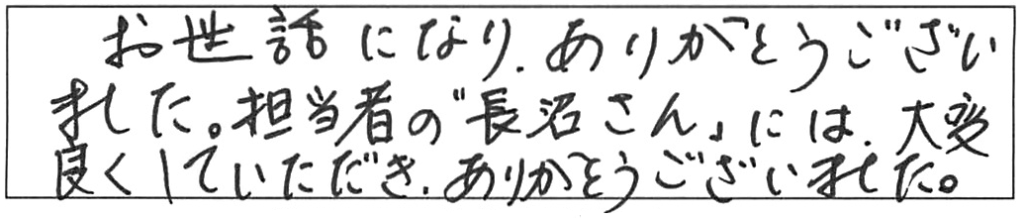 お世話になり、ありがとうござい
ました。担当者の"長沼さん"には、大変
良くしていただき、ありがとうございました。